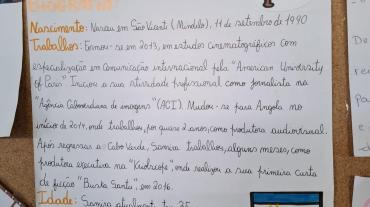 BIOGRAFIA
Nascimento: Nasceu em São Vicente (Mindelo), 11 de setembro de 1990
Trabalhos: Formou-se em 2013, em estudos cinematográficos com
especialização em Comunicação internacional pela "American University
of Paris" Iniciou a sua atividade profissional como jornalista na
"Agência Caboverdiana de imagens" (ACI). Mudou-se para Angola no
início de 2014, onde trabalhou, por quase 2 anos, como produtora audiovisual.
Após regressar a Cabo Verde, Samira trabalhou, alguns meses, como
produtora executiva na "Kriolscope", onde realizou a sua primeira Curta
de ficção "Buska Santu", em 2016.
Idade: Samira atualment tem 25